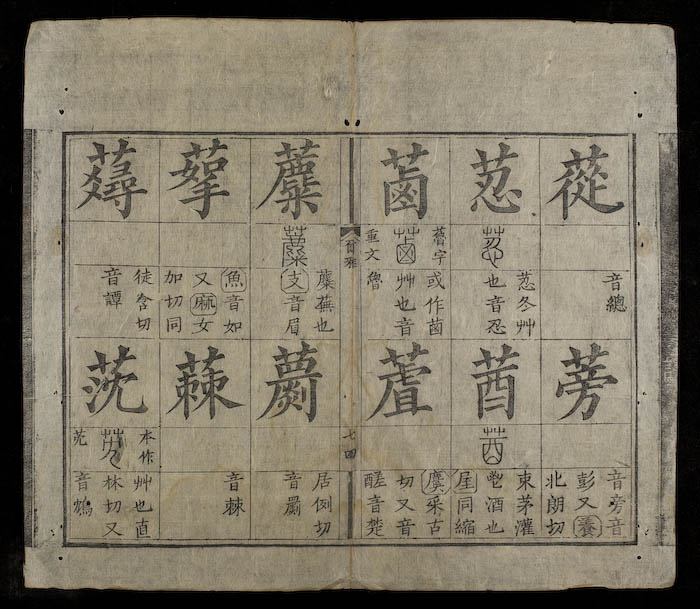 蓯
音總
荵
荵冬艸
也音忍
蓾
字或作
艸也音
重文魯
蒡
音旁音
彭又養
北朗切
莤
束茅灌
鬯酒也
屋同縮
蔖
麌采古
切又音
醝音楚
爾雅
七四
蘪
麋蕪也
支音眉
蒘
魚音如
又麻女
加切同
蕁
徒含切
音譚
蘮
居例切
音罽
蕀
音棘
莐
本作艸也直
林切又